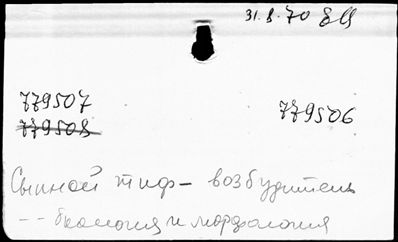 31.8.70
779507
779506
779508
Сыпной тиф - возбудитель
-- биология и морфология